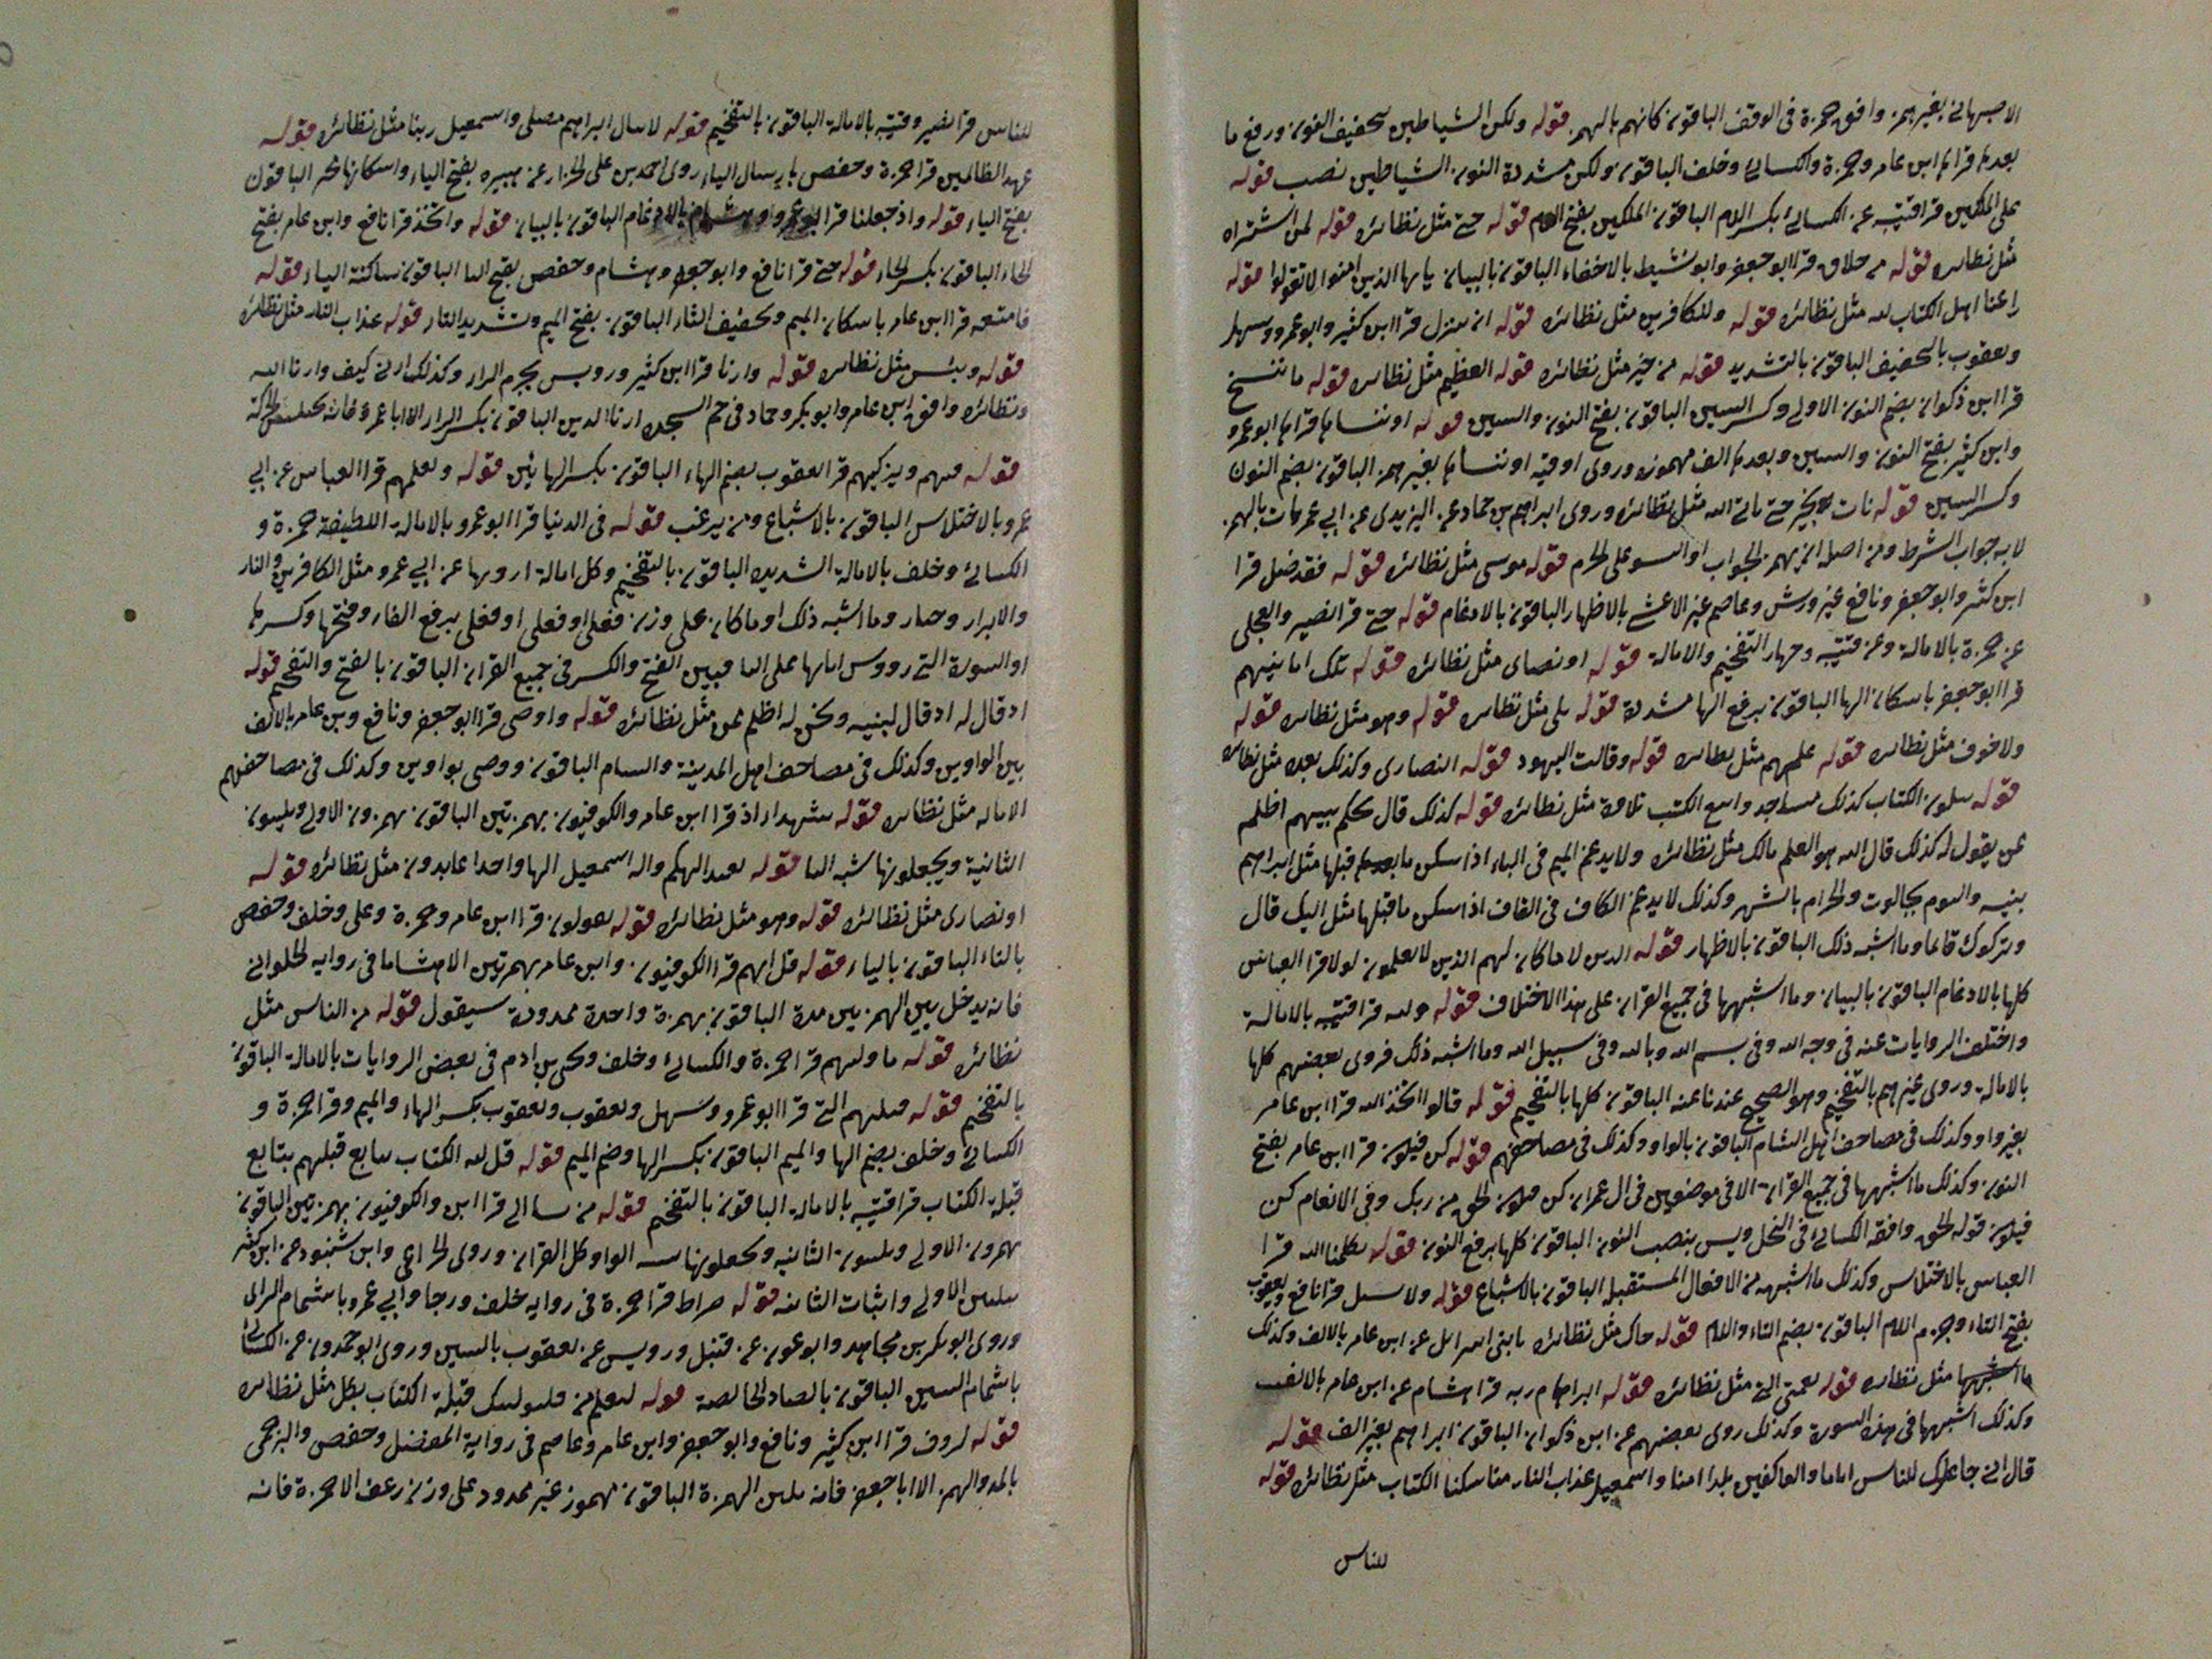 الاصبهاني بغير همز وافق حمزة في الوقف الباقون كانهم بالهمز قوله ولكن الشياطين بتخفيف النون ورفع ما
بعدها قرا ابن عامر وحمزة والكسائي وخلف الباقون ولكن مشددة النون الشياطين نصب قوله
على الملكين قرا قتيبة عن الكسائي بكسر اللام الباقون الملكين بفتح اللام قوله حتى مثل نظائره قوله لمن اشتراه
مثل نظائره قوله من خلاق قرا ابو جعفر وابو نشيط بالاخفاء الباقون بالبيان يا يها الذين امنوا لا تقولوا قوله
راعنا اهل الكتاب لله مثل نظائره قوله وللكافرين مثل نظائره قوله ان ينزل قرا ابن كثير وابو عمرو وسهل
ويعقوب بالتخفيف الباقون بالتشديد قوله من خير مثل نظائره قوله العظيم مثل نظائره قوله ما ننسخ
قرا ابن ذكوان بضم النون الاولى وكسر السين الباقون بفتح النون والسين قوله او ننساها قراها ابو عمرو
وابن كثير بفتح النون والسين وبعدها الف مهموزه وروى اوقيه او ننساها بغير همز الباقون بضم النون
وكسر السين قوله نات بخير حتى ياتي الله مثل نظائره وروى ابراهيم بن حماد عن اليزيدي عن ابي عمر نات بالهمز
لانه جواب الشرط ومن اصله ان يهمز الجواب او النسق على الجزم قوله موسى مثل نظائره قوله فقد ضل قرا
ابن كثير وابو جعفر ونافع غير ورش وعاصم غير الاعشى بالاظهار الباقون بالادغام قوله حتى قرا نصير والعجلي
عن حمزة بالامالة وعن قتيبة وجهان التفخيم والامالة قوله او نصارى مثل نظائره قوله تلك امانيهم
قرا ابو جعفر باسكان الها الباقون برفع الها مشددة قوله بلى مثل نظائره قوله وهو مثل نظائره قوله
ولا خوف مثل نظائره قوله عليهم مثل نظائره قوله وقالت اليهود قوله النصارى وكذلك بعده مثل نظائره
قوله يتلون الكتاب كذلك مساجد واسع الكتب تلاوة مثل نظائره قوله كذلك قال يحكم بينهم اظلم
عن يقول له كذلك قال الله هو العلم مالك مثل نظائره ولا يدغم الميم في الباء اذا سكن ما قبلها مثل ابراهيم
بنيه واليوم بجالوت والحرام بالشهر وكذلك لا يدغم الكاف في القاف اذا سكن ما قبلها مثل اليك قال
وتركوك قائما وما اشبه ذلك الباقون بالاظهار قوله الذين لا ما كان لهم الذين لا يعلمون لولا قرا العباس
كلها بالادغام الباقون بالبيان وما اشبهها في جميع القران على هذا الاختلاف قوله ولله قرا قتيبه بالامالة
واختلف الروايات عنه في وجه الله وفي بسم الله وبالله وفي سبيل الله وما اشبه ذلك فروى بعضهم كلها
بالامالة وروى غيرهم بالتفخيم وهو الصحيح عندنا عنه الباقون كلها بالتفخيم قوله قالوا اتخذ الله قرا ابن عامر
بغير واو وكذلك في مصاحف اهل الشام الباقون بالواو وكذلك في مصاحفهم قوله كن فيكون قرا ابن عامر بفتح
النون وكذلك ما اشبهها في جميع القران الا في موضعين في ال عمران كن فيكون الحق من ربك وفي الانعام كن
فيكون قوله الحق وافقه الكسائي في النحل ويس بنصب النون الباقون كلها برفع النون قوله يكلمنا الله قرا
العباس بالاختلاس وكذلك ما اشبهه من الافعال المستقبلة الباقون بالاشباع قوله ولا تسئل قرا نافع ويعقوب
بفتح التاء وجزم اللام الباقون بضم التاء واللام قوله جاك مثل نظائره يابني اسرائل عن ابن عامر بالالف وكذلك
ما اشبهها مثل نظائره قوله نعمتي التي مثل نظائره قوله ابراهام ربه قرا هشام عن ابن عامر بالالف
وكذلك اشبهها في هذه السورة وكذلك روى بعضهم عن ابن ذكوان الباقون ابراهيم بغير الف قوله
قال اني جاعلك للناس اماما والعاكفين بلدا امنا واسمعيل عذاب النار مناسكنا الكتاب مثل نظائره قوله
للناس
للناس قرا نصير وقتيبه بالامالة الباقون بالتفخيم قوله لا ينال ابراهيم مصلى واسمعيل ربنا مثل نظائره قوله
عهد الظالمين قرا حمزة وحفص بارسال الياء روى احمد بن علي الخزاز عن هبيره بفتح الياء واسكانها الباقون
بفتح الياء قوله واذ جعلنا قرا ابو عمرو وهشام بالادغام الباقون بالبيان قوله واتخذ قرا نافع وابن عامر بفتح
الخاء الباقون بكسر الخاء قوله بيتي قرا نافع وابو جعفر وهشام وحفص بفتح اليا الباقون ساكنة الياء قوله
فامتعه قرا ابن عامر باسكان الميم وتخفيف التاء الباقون بفتح الميم وتشديد التاء قوله عذاب النار مثل نظائره
قوله وبئس مثل نظائره قوله وارنا قرا ابن كثير ورويس بجزم الراء وكذلك ارني كيف وارنا الله
ونظائره وافق ابن عامر وابو بكر وحماد في حم السجده ارنا الذين الباقون بكسر الراء الا ابا عمرو فانه يختلس الحركة
قوله فيهم ويزكيهم قرا يعقوب بضم الهاء الباقون بكسر الهائين قوله ويعلمهم قرا العباس عن ابي
عمرو بالاختلاس الباقون بالاشباع ومن يرغب قوله في الدنيا قرا ابو عمرو بالامالة اللطيفة حمزة و
الكسائي وخلف بالامالة الشديدة الباقون بالتفخيم وكل امالة ارويها عن ابي عمرو مثل الكافرين والنار
والابرار وحمار وما اشبه ذلك او ما كان على وزن فعلى او فعلى او فعلى برفع الفاء وفتحها وكسرها
او السورة التي رووس اياتها على اليا فبين الفتح والكسر في جميع القران الباقون بالفتح والتفخيم قوله
اذ قال له اذ قال لبنيه ونحن له اظلم ممن مثل نظائره قوله واوصى قرا ابو جعفر ونافع وبن عامر بالالف
بين الواوين وكذلك في مصاحف اهل المدينة والشام الباقون ووصى بواوين وكذلك في مصاحفهم
الاماله مثل نظائره قوله شهداء اذ قرا ابن عامر والكوفيون بهمزتين الباقون يهمزون الاولى ويلينون
الثانية ويجعلونها شبه اليا قوله نعبد الهكم واله اسمعيل الها واحدا عابدون مثل نظائره قوله
او نصارى مثل نظائره قوله وهو مثل نظائره قوله تقولون قرا ابن عامر وحمزة وعلي وخلف وحفص
بالتاء الباقون بالياء قوله قل انهم قرا الكوفيون وابن عامر بهمزتين الا هشاما في روايه الحلواني
فانه يدخل بين الهمزتين مدة الباقون بهمزة واحدة ممدودة سيقول قوله من الناس مثل
نظائره قوله ما وليهم قرا حمزة والكسائي وخلف ويحيى بن ادم في بعض الروايات بالامالة الباقون
بالتفخيم قوله قبلتهم التي قرا ابو عمرو وسهل ويعقوب ويعقوب بكسر الهاء والميم وقرا حمزة و
الكسائي وخلف بضم الها والميم الباقون بكسر الها وضم الميم قوله قل لله الكتاب بتابع قبلتهم بتابع
قبلة الكتاب قرا قتيبه بالامالة الباقون بالتفخيم قوله من يشا الى قرا ابن والكوفيون بهمزتين الباقون
يهمزون الاولى ويلينون الثانيه ويجعلونها شبه الواو كل القران وروى الخزاعي وابن شنبوذ عن ابن كثير
بتليين الاولى واثبات الثانيه قوله صراط قرا حمزة في روايه خلف ورجا وابي عمرو باشمام الزاي
وروى ابو بكر بن مجاهد وابو عون عن قنبل ورويس عن يعقوب بالسين وروى ابو حمدون عن الكسائي
باشمام السين الباقون بالصاد الخالصة قوله لنعلم من فلنولينك قبلة الكتاب بكل مثل نظائره
قوله لروف قرا ابن كثير ونافع وابو جعفر وابن عامر وعاصم في رواية المفضل وحفص والبرجمي
بالمد والهمز الا ابا جعفر فانه يلين الهمزة الباقون مهموز غير ممدود على وزن رعف الا حمزة فانه